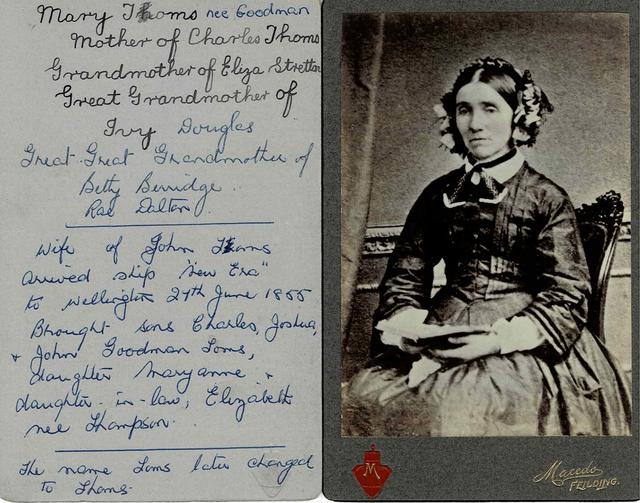 Mary Thoms nee Goodman
Mother of Charles Thoms
Grandmother of Eliza Stretton
Great Grandmother of
Ivy Douglas
Great Great Grandmother of
Betty Berridge
Rae Dalton.
Wife of John Thoms
arrived ship "New Era"
to Wellington 27th June 1855
Brought sons Charles, Joshua,
& John Goodman Toms,
daughter Mary Anne &
daughter-in-law, Elizabeth
nee Thompson.
The name Toms later changed
to Thoms.
M
Macedo
FEILDING.